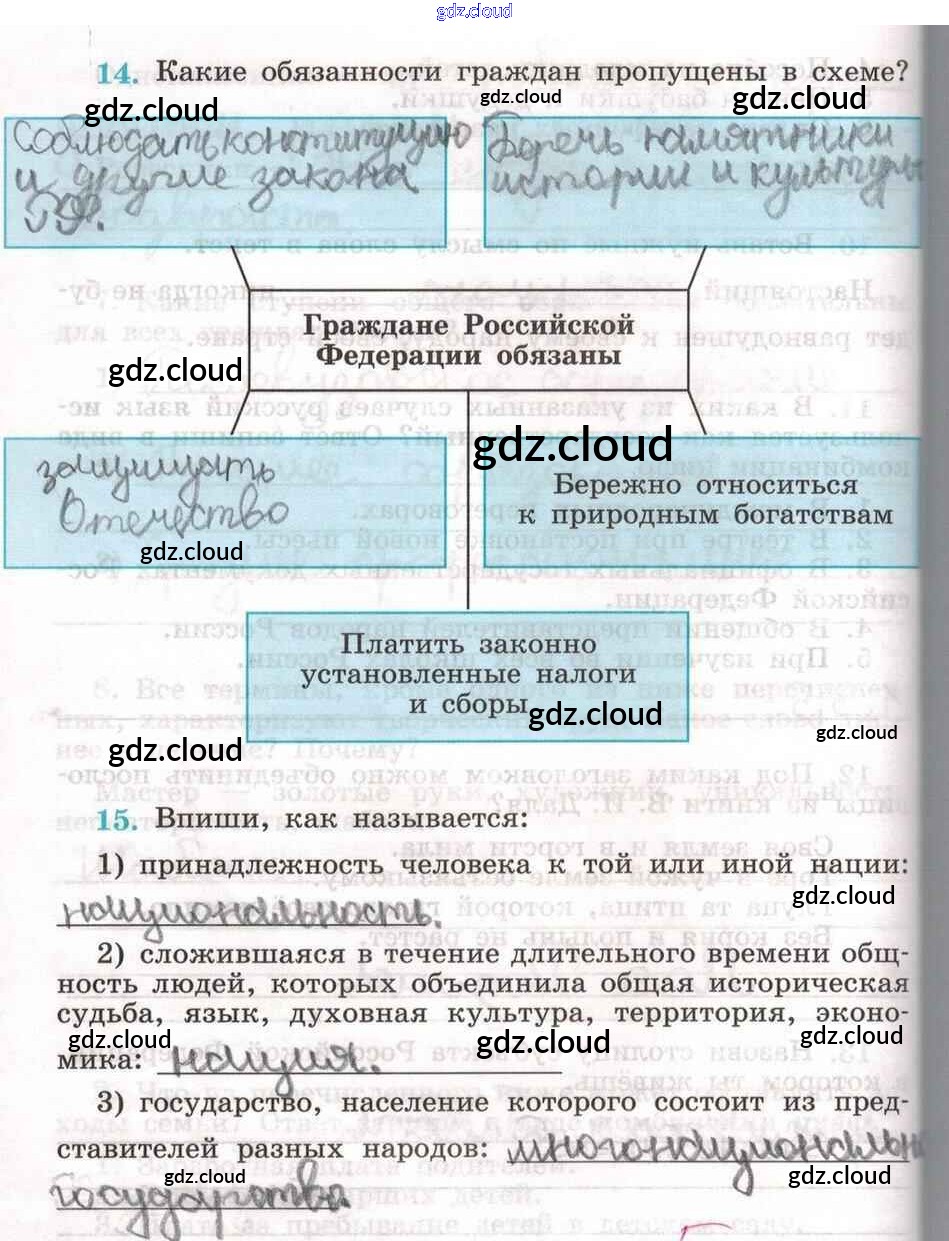 gdz.cloud
14. Какие обязанности граждан пропущены в схеме?
gdz.cloud gdz.cloud gdz.cloud
Соблюдать конституцию
и другие закона
РФ.
Беречь памятники
истории и культуры
Граждане Российской
Федерации обязаны
gdz.cloud
gdz.cloud
защищать
Отечество
gdz.cloud
Бережно относиться
к природным богатствам
Платить законно
установленные налоги
и сборы
gdz.cloud
gdz.cloud
gdz.cloud
15. Впиши, как называется:
1) принадлежность человека к той или иной нации:
gdz.cloud
национальность.
2) сложившаяся в течение длительного времени общ-
ность людей, которых объединила общая историческая
судьба, язык, духовная культура, территория, эконо-
gdz.cloud gdz.cloud gdz.cloud
мика: нация.
3) государство, население которого состоит из пред-
ставителей разных народов: многонационально
gdz.cloud gdz.cloud
государство.